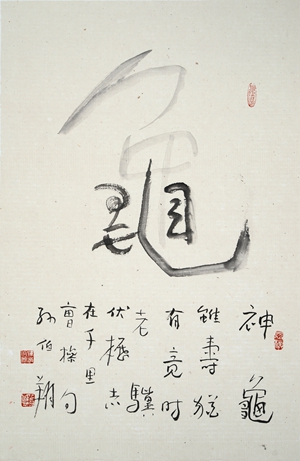 龜
神龜
雖壽猶
有竟時
老驥
伏櫪志
在千里
曹操句
孫伯翔